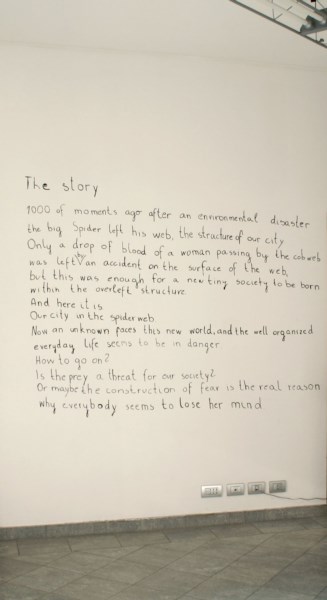 The story
1000 of moments ago after an environmental disaster
the big Spider left his web, the structure of our city
Only a drop of blood of a woman passing by the cobweb
was left by an accident on the surface of the web,
but this was enough for a new tiny society to be born
within the overleft structure
And here it is
Our city in the spiderweb
Now an unknown paces this new world, and the well organized
everyday life seems to be in danger
How to go on?
Is the prey a threat for our society?
Or maybe the construction of fear is the real reason
why everybody seems to lose her mind